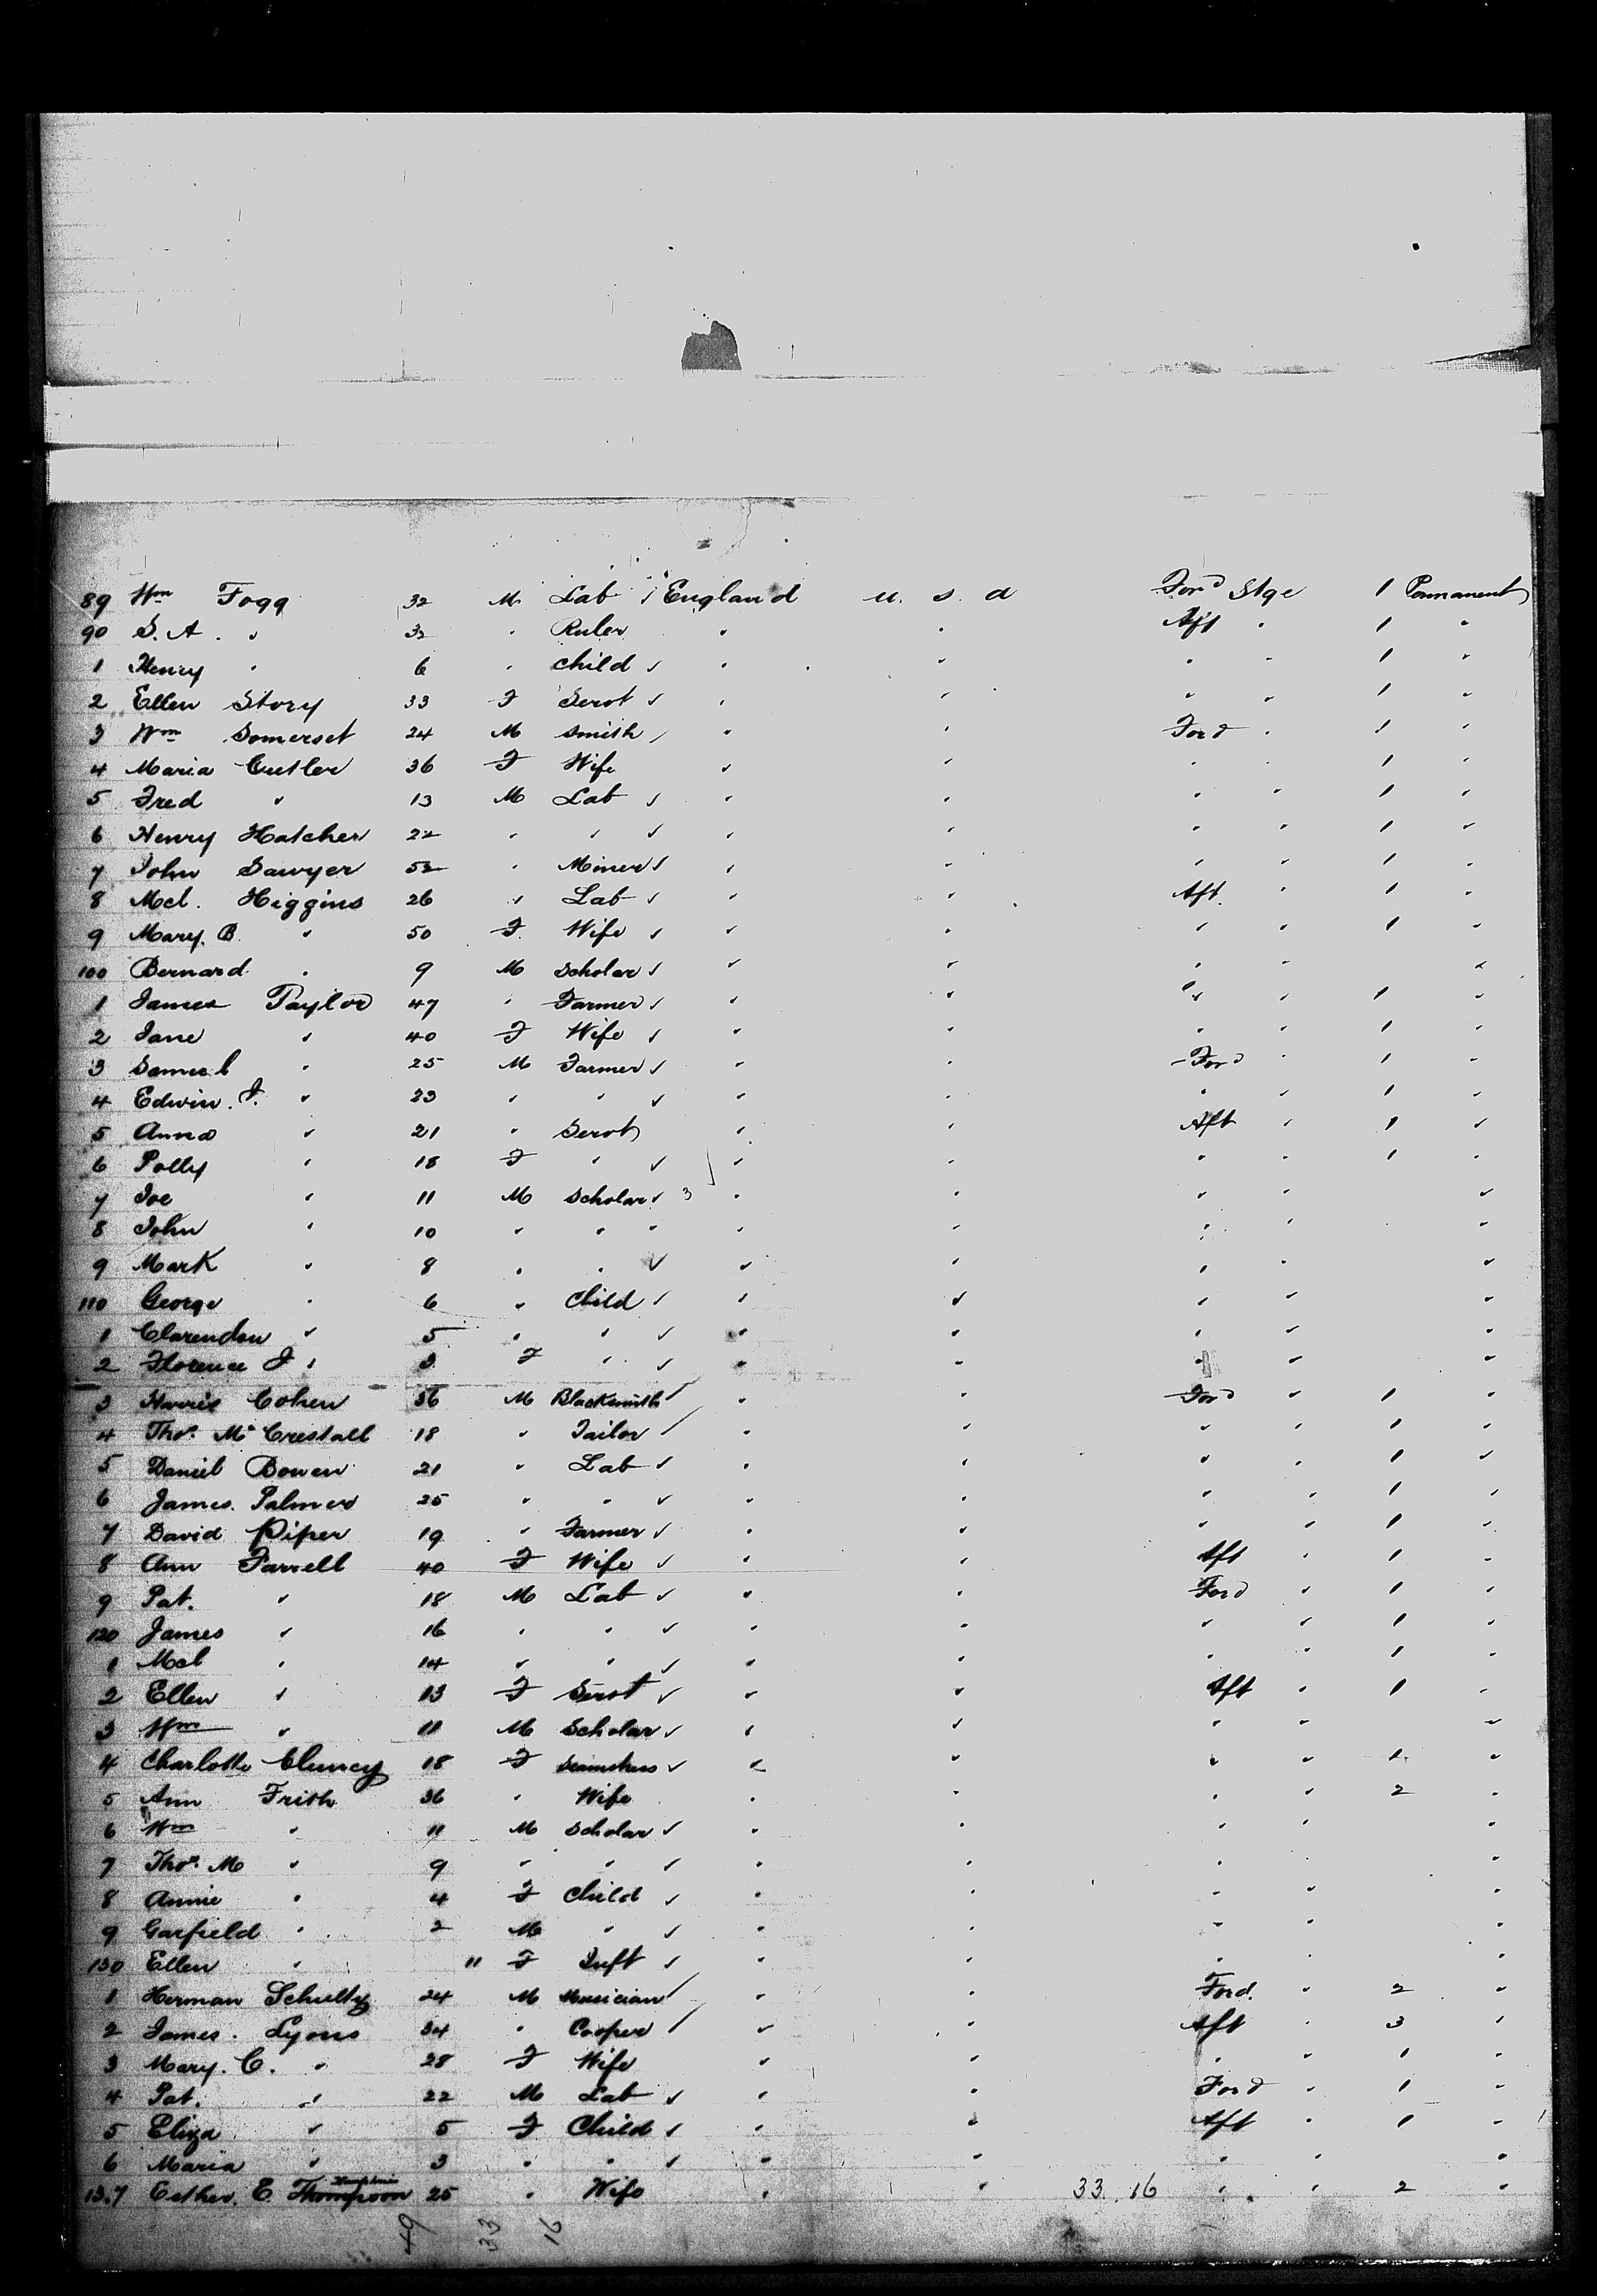 89 Wm Fogg 32 M Lab ✓ England U. S. A Ford Stge 1 Permanent
90 S. A. " 32 " Ruler " " Aft " 1 "
1 Henry " 6 " Child ✓ " " " " 1 "
2 Ellen Story 33 F Servt ✓ " " " " 1 "
3 Wm Somerset 24 M Smith ✓ " " Ford " 1 "
4 Maria Cutler 36 F Wife " " " " 1 "
5 Fred " 13 M Lab ✓ " " " " 1 "
6 Henry Hatcher 22 " " ✓ " " " " 1 "
7 John Sawyer 52 " Miner ✓ " " " " 1 "
8 Mcl. Higgins 26 " Lab ✓ " " Aft. " 1 "
9 Mary. B. " 50 F. Wife ✓ " " " " 1 "
100 Bernard " 9 M Scholar ✓ " " " " "
1 James Taylor 47 " Farmer ✓ " " " " 1 "
2 Jane " 40 F Wife ✓ " " " " 1 "
3 Samuel " 25 M Farmer ✓ " " Ford " 1 "
4 Edwin. J. " 23 " " ✓ " " " " 1 "
5 Anna " 21 " Servt " " Aft " 1 "
6 Polly " 18 F " ✓ " " " " 1 "
7 Joe " 11 M Scholar ✓ 3 " " " " "
8 John " 10 " " " " " " " "
9 Mark " 8 " " ✓ " " " " "
110 George " 6 " Child ✓ " " " " "
1 Clarendon " 5 " " ✓ " " " " "
2 Florence J " 3 F " ✓ " " " " "
3 Harris Cohen 36 M Blacksmith ✓ " " Ford " 1 "
4 Thos. Mc Crestall 18 " Tailor ✓ " " " " 1 "
5 Daniel Bowen 21 " Lab ✓ " " " " 1 "
6 James. Palmer 25 " " ✓ " " " " 1 "
7 David Piper 19 " Farmer ✓ " " " " 1 "
8 Ann Farrell 40 F Wife ✓ " " Aft " 1 "
9 Pat. " 18 M Lab ✓ " " Ford " 1 "
120 James " 16 " " ✓ " " " " 1 "
1 Mcl " 14 " " ✓ " " " " 1 "
2 Ellen " 13 F Servt ✓ " " Aft " 1 "
3 Wm " 11 M Scholar ✓ " " " " "
4 Charlotte Clumcy 18 F Seamstress ✓ " " " " 1 "
5 Ann Frith 36 " Wife " " " " 2 "
6 Wm " 11 M Scholar ✓ " " " " "
7 Thos. M " 9 " " ✓ " " " "
8 Annie " 4 F Child ✓ " " " " "
9 Garfield " 2 M " ✓ " " " " "
130 Ellen " 11 F Inft ✓ " " " " "
1 Herman Schultz 24 M Musician ✓ " " Ford. " 2 "
2 James. Lyons 34 " Cooper ✓ " " Aft " 3 "
3 Mary. C. " 28 F Wife " " " " 1 "
4 Pat. " 22 M Lab ✓ " " Ford " 1 "
5 Eliza " 5 F Child ✓ " " Aft " 1 "
6 Maria " 3 " " ✓ " " " " "
13.7 Esther. E. Thompson 25 " Wife " " 33. 16 " " 2 "
49 33 16